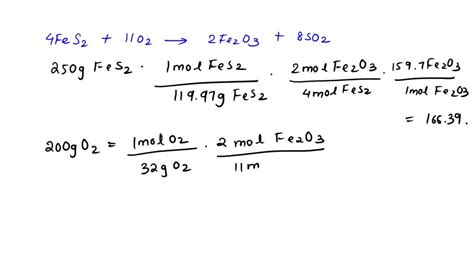 4FeS2 + 11O2 → 2Fe2O3 + 8SO2
250g FeS2 · 1mol FeS2 / 119.97g FeS2 · 2mol Fe2O3 / 4mol FeS2 · 159.7Fe2O3 / 1mol Fe2O3
= 166.39.
200gO2 = 1mol O2 / 32g O2 · 2 mol Fe2O3 / 11m